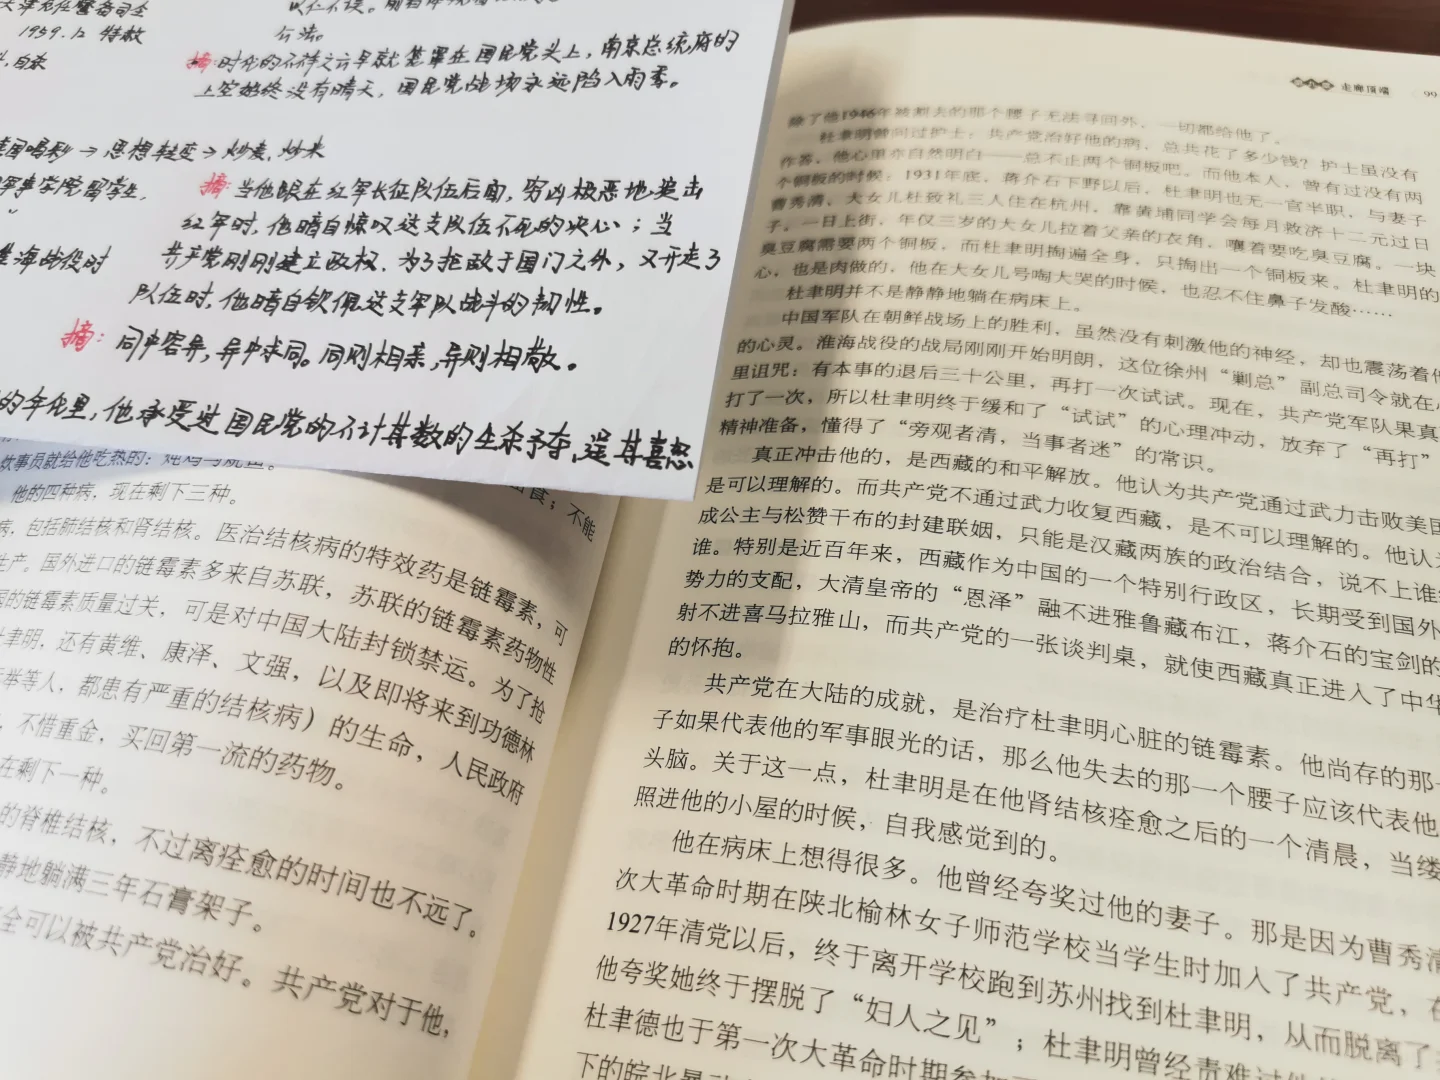 天津
1959.12 特赦
方法。
摘:时代的不祥之云早就笼罩在国民党头上，南京总统府的
上空始终没有晴天，国民党战场永远陷入雨季。
→思想转变→炒麦、炒米
军事学院留学生，
摘:当他跟在红军长征队伍后面，穷凶极恶地追击
红军时，他暗自惊叹这支队伍不死的决心；当
淮海战役时
共产党刚刚建立政权，为了拒敌于国门之外，又开走了
队伍时，他暗自钦佩这支军队战斗的韧性。
摘:同中容异，异中求同。同则相亲，异则相敬。
的年代里，他承受过国民党的不计其数的生杀予夺，逞其喜怒
故事员就给他吃热的：炖鸡
食；不能
他的四种病，现在剩下三种。
病，包括肺结核和肾结核。医治结核病的特效药是链霉素，可
生产。国外进口的链霉素多来自苏联，苏联的链霉素药物性
的链霉素质量过关，可是对中国大陆封锁禁运。为了抢
杜聿明，还有黄维、康泽、文强，以及即将来到功德林
举等人，都患有严重的结核病）的生命，人民政府
，不惜重金，买回第一流的药物。
在剩下一种。
的脊椎结核，不过离痊愈的时间也不远了。
静地躺满三年石膏架子。
全可以被共产党治好。共产党对于他，
走廊顶端 99
除了他1946年被割去的那个腰子无法寻回外，一切都给他了。
杜聿明曾问过护士：共产党治好他的病，总共花了多少钱？护士虽没有
作答，他心里亦自然明白——总不止两个铜板吧。而他本人，曾有过没有两
个铜板的时候：1931年底，蒋介石下野以后，杜聿明也无一官半职，与妻子
曹秀清、大女儿杜致礼三人住在杭州，靠黄埔同学会每月救济十二元过日
子。一日上街，年仅三岁的大女儿拉着父亲的衣角，嚷着要吃臭豆腐。一块
臭豆腐需要两个铜板，而杜聿明掏遍全身，只掏出一个铜板来。杜聿明的
心，也是肉做的，他在大女儿号啕大哭的时候，也忍不住鼻子发酸……
杜聿明并不是静静地躺在病床上。
中国军队在朝鲜战场上的胜利，虽然没有刺激他的神经，却也震荡着他
的心灵。淮海战役的战局刚刚开始明朗，这位徐州“剿总”副总司令就在心
里诅咒：有本事的退后三十公里，再打一次试试。现在，共产党军队果真
打了一次，所以杜聿明终于缓和了“试试”的心理冲动，放弃了“再打”
精神准备，懂得了“旁观者清，当事者迷”的常识。
真正冲击他的，是西藏的和平解放。他认为共产党通过武力击败美国
是可以理解的。而共产党不通过武力收复西藏，是不可以理解的。他认为
成公主与松赞干布的封建联姻，只能是汉藏两族的政治结合，说不上谁
谁。特别是近百年来，西藏作为中国的一个特别行政区，长期受到国外
势力的支配，大清皇帝的“恩泽”融不进雅鲁藏布江，蒋介石的宝剑的
射不进喜马拉雅山，而共产党的一张谈判桌，就使西藏真正进入了中华
的怀抱。
共产党在大陆的成就，是治疗杜聿明心脏的链霉素。他尚存的那一
子如果代表他的军事眼光的话，那么他失去的那一个腰子应该代表他
头脑。关于这一点，杜聿明是在他肾结核痊愈之后的一个清晨，当缕
照进他的小屋的时候，自我感觉到的。
他在病床上想得很多。他曾经夸奖过他的妻子。那是因为曹秀清
次大革命时期在陕北榆林女子师范学校当学生时加入了共产党，在
1927年清党以后，终于离开学校跑到苏州找到杜聿明，从而脱离了
他夸奖她终于摆脱了“妇人之见”；杜聿明曾经责难过他的
杜聿德也于第一次大革命时期参加
下的皖北暴动